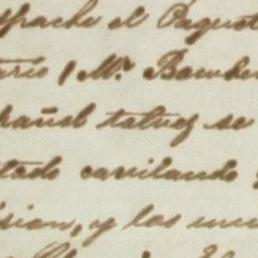 spache el Paquet
ario / Mr. Bamber
pañol talvez se
tado cavilando
ision, y las num